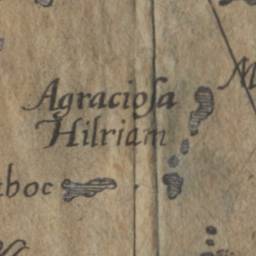 Agracioſa
Hilriam
M
aboc